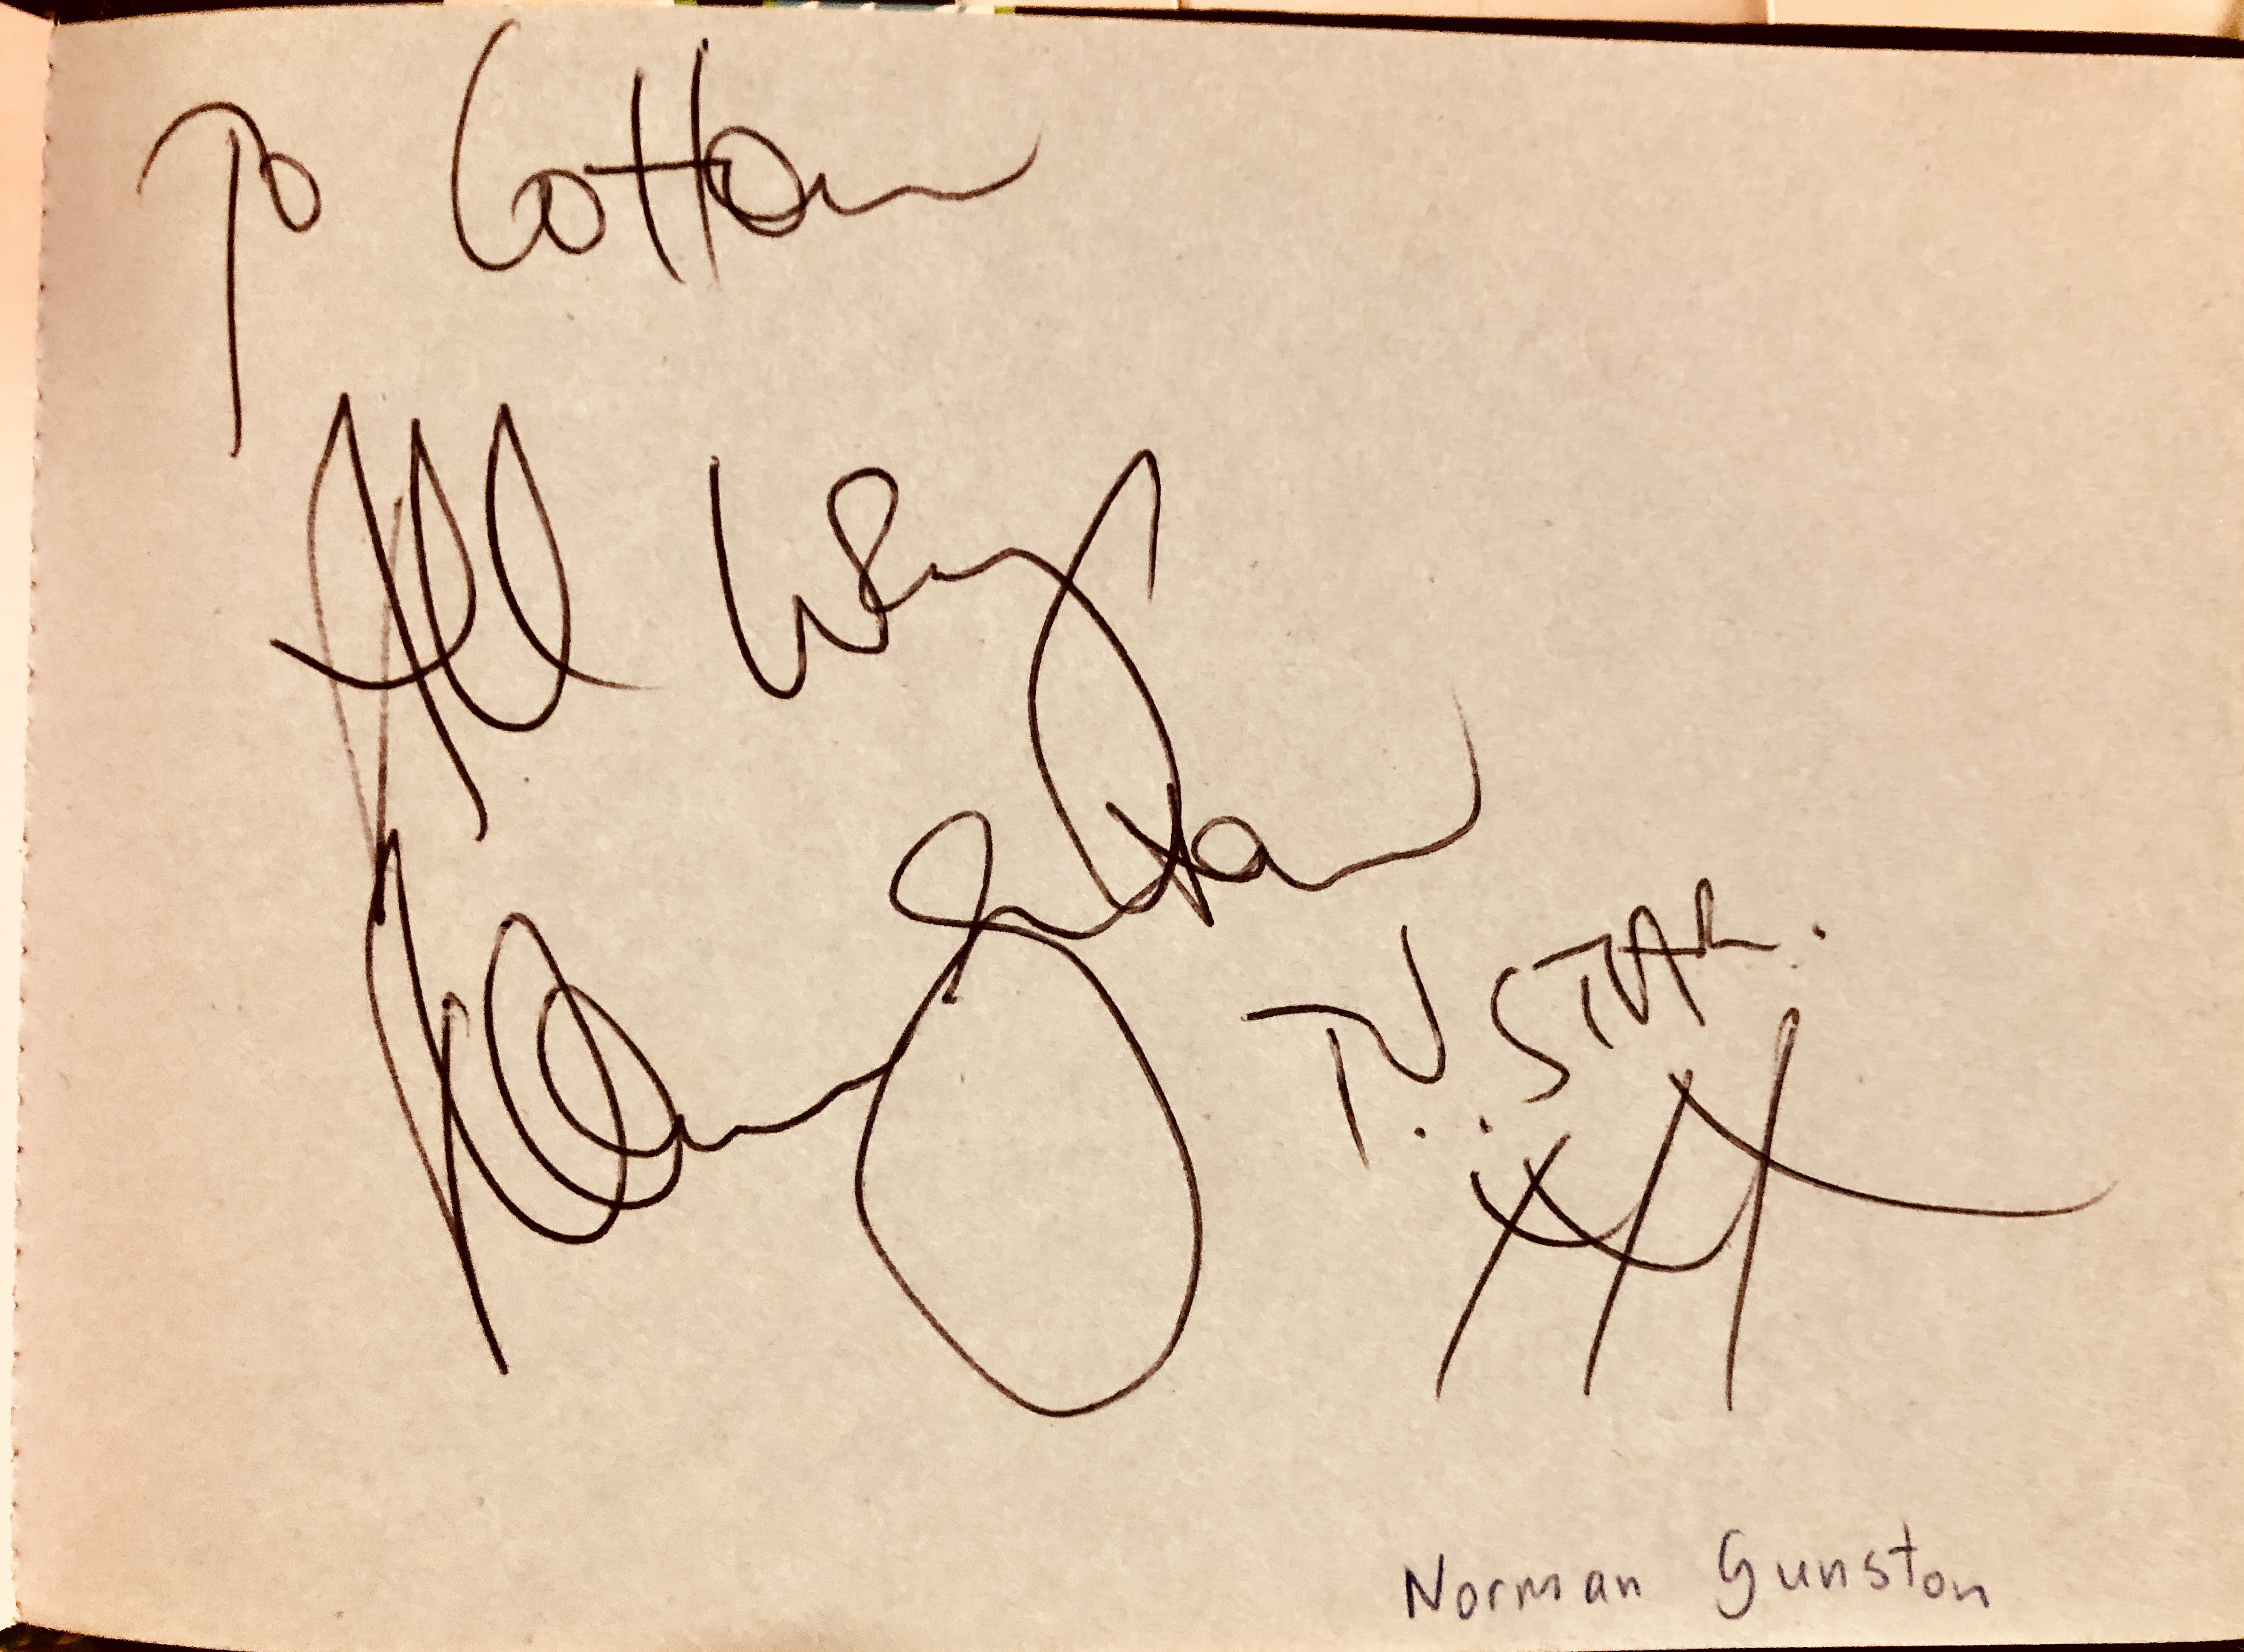 To Cotton
All
Norman Gunston
T.V. STAR.
XXX
Norman Gunston